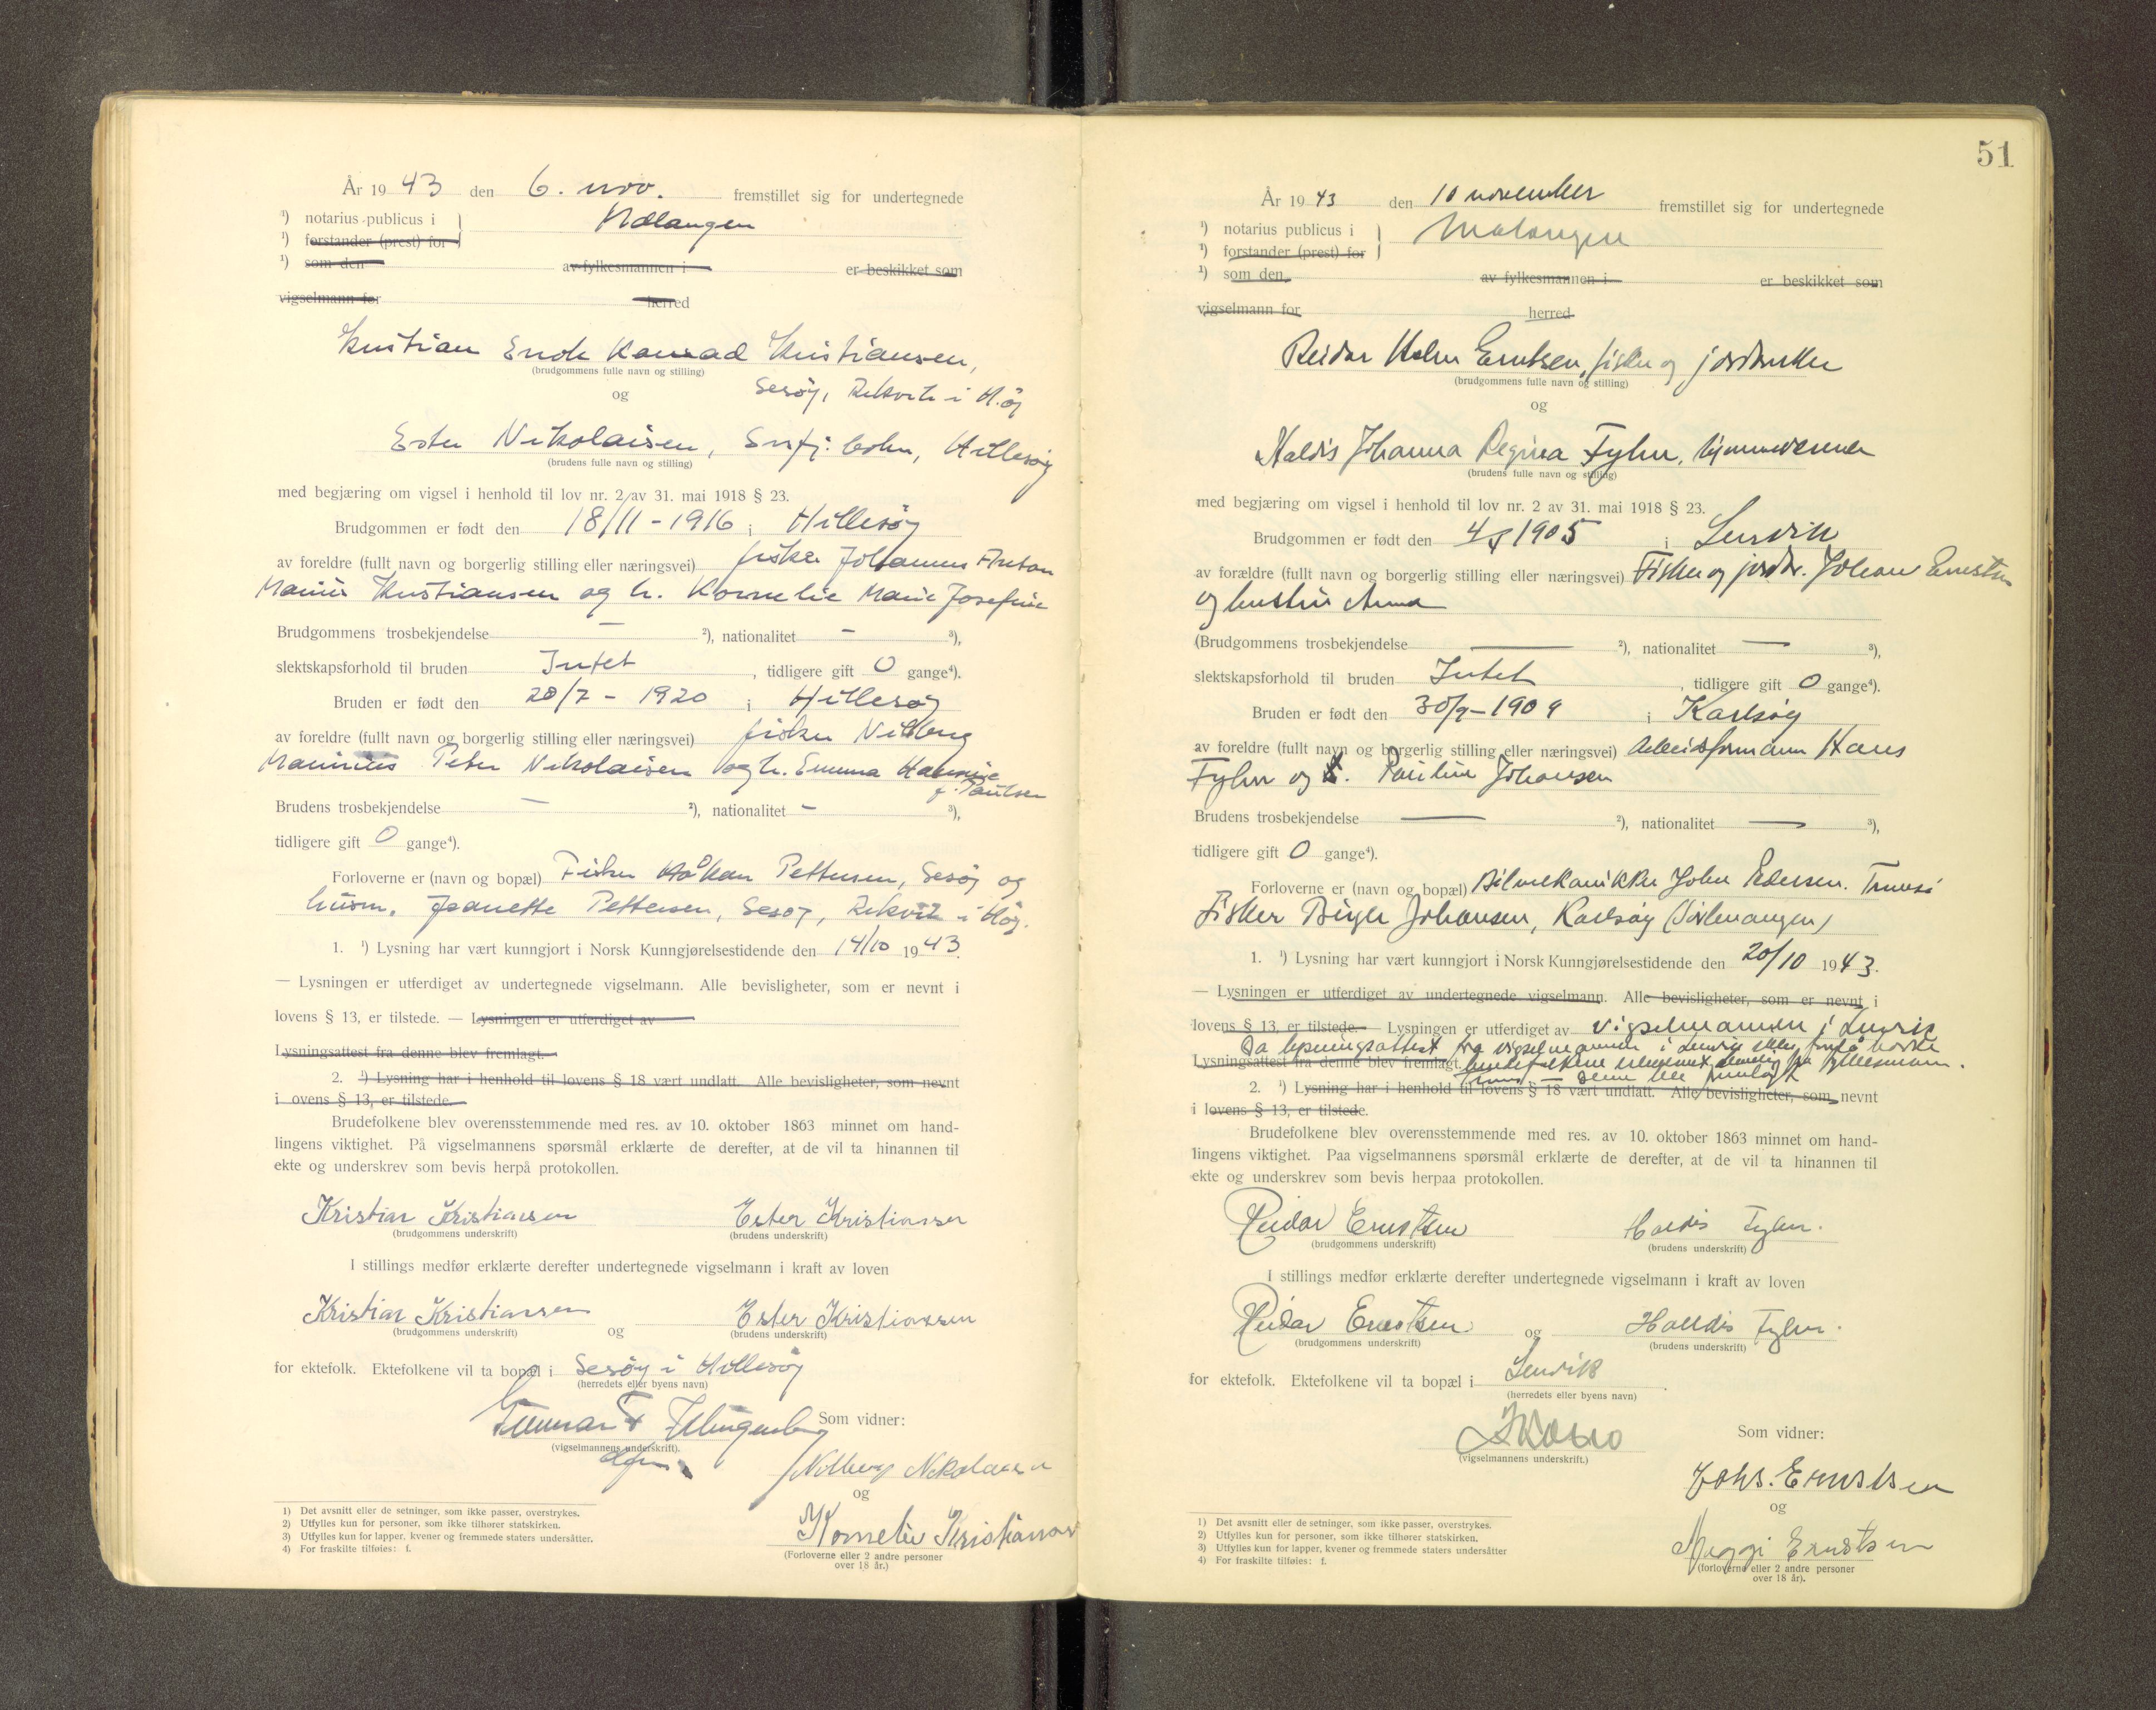 År 19 43 den 6. nov. fremstillet sig for undertegnede
¹) notarius publicus i Malangen
¹) forstander (prest) for
¹) som den av fylkesmannen i er beskikket som
vigselmann for herred
Kristian Enok Konrad Kristiansen,
(brudgommens fulle navn og stilling)
og Sesøy, Rekvik i H.øy
Ester Nikolaisen, Hillesøy
(brudens fulle navn og stilling)
med begjæring om vigsel i henhold til lov nr. 2 av 31. mai 1918 § 23.
Brudgommen er født den 18/11 - 1916 i Hillesøy
av foreldre (fullt navn og borgerlig stilling eller næringsvei) fisker Johannes Anton
Marius Kristiansen og h. Kornelie Marie Josefine
Brudgommens trosbekjendelse — ²), nationalitet — ³),
slektskapsforhold til bruden Intet, tidligere gift 0 gange⁴).
Bruden er født den 28/7 - 1920 i Hillesøy
av foreldre (fullt navn og borgerlig stilling eller næringsvei) fisker Nilberg
Peter Nikolaisen og h. Emma
f. Paulsen
Brudens trosbekjendelse — ²), nationalitet — ³),
tidligere gift 0 gange⁴).
Forloverne er (navn og bopæl) Fisker Håkon Pettersen, Sesøy og
husm. Jeanette Pettersen, Sesøy, Rekvik i Høy.
1. ¹) Lysning har vært kunngjort i Norsk Kunngjørelsestidende den 14/10 1943.
— Lysningen er utferdiget av undertegnede vigselmann. Alle bevisligheter, som er nevnt i
lovens § 13, er tilstede. — Lysningen er utferdiget av
Lysningsattest fra denne blev fremlagt.
2. ¹) Lysning har i henhold til lovens § 18 vært undlatt. Alle bevisligheter, som nevnt
i ovens § 13, er tilstede.
Brudefolkene blev overensstemmende med res. av 10. oktober 1863 minnet om hand-
lingens viktighet. På vigselmannens spørsmål erklærte de derefter, at de vil ta hinannen til
ekte og underskrev som bevis herpå protokollen.
Kristian Kristiansen Ester Kristiansen
(brudgommens underskrift) (brudens underskrift)
I stillings medfør erklærte derefter undertegnede vigselmann i kraft av loven
Kristian Kristiansen og Ester Kristiansen
(brudgommens underskrift) (brudens underskrift)
for ektefolk. Ektefolkene vil ta bopæl i Sesøy i Hillesøy
(herredets eller byens navn)
Gunnar Klingenberg Som vidner:
(vigselmannens underskrift).
Nilberg Nikolaisen
og
Kornelie Kristiansen
(Forloverne eller 2 andre personer
over 18 år.)
1) Det avsnitt eller de setninger, som ikke passer, overstrykes.
2) Utfylles kun for personer, som ikke tilhører statskirken.
3) Utfylles kun for lapper, kvener og fremmede staters undersåtter.
4) For fraskilte tilføies: f.
51
År 19 43 den 10 november fremstillet sig for undertegnede
¹) notarius publicus i Malangen
¹) forstander (prest) for
¹) som den av fylkesmannen i er beskikket som
vigselmann for herred
Reidar Holm Erntsen, fisker og jordbruker
(brudgommens fulle navn og stilling)
og
Haldis Johanna Regina Fyhn, hjemmeværende
(brudens fulle navn og stilling)
med begjæring om vigsel i henhold til lov nr. 2 av 31. mai 1918 § 23.
Brudgommen er født den 1905 i Lenvik
av forældre (fullt navn og borgerlig stilling eller næringsvei) Fisker og jordbr. Johan Ernstsen
og hustru Anna
(Brudgommens trosbekjendelse — ²), nationalitet — ³),
slektskapsforhold til bruden Intet, tidligere gift 0 gange⁴).
Bruden er født den 30/9 - 1909 i Karlsøy
av foreldre (fullt navn og borgerlig stilling eller næringsvei) Arbeidsformann Hans
Fyhn og Pauline Johansen
Brudens trosbekjendelse — ²), nationalitet — ³),
tidligere gift 0 gange⁴).
Forloverne er (navn og bopæl) Bilmekaniker John Pedersen, Tromsø
Fisker Birger Johansen, Karlsøy
1. ¹) Lysning har vært kunngjort i Norsk Kunngjørelsestidende den 20/10 1943.
— Lysningen er utferdiget av undertegnede vigselmann. Alle bevisligheter, som er nevnt i
lovens § 13, er tilstede. — Lysningen er utferdiget av vigselmannen i Lenvik
Da lysningsattest fra vigselmannen i Lenvik
Lysningsattest fra denne blev fremlagt. brudefolkene fra fylkesmann.
denne ble fremlagt
2. ¹) Lysning har i henhold til lovens § 18 vært undlatt. Alle bevisligheter, som nevnt
i lovens § 13, er tilstede.
Brudefolkene blev overensstemmende med res. av 10. oktober 1863 minnet om hand-
lingens viktighet. Paa vigselmannens spørsmål erklærte de derefter, at de vil ta hinannen til
ekte og underskrev som bevis herpaa protokollen.
Reidar Ernstsen Haldis Fyhn.
(brudgommens underskrift) (brudens underskrift)
I stillings medfør erklærte derefter undertegnede vigselmann i kraft av loven
Reidar Ernstsen og Haldis Fyhn.
(brudgommens underskrift) (brudens underskrift)
for ektefolk. Ektefolkene vil ta bopæl i Lenvik
(herredets eller byens navn)
Som vidner:
(vigselmannens underskrift.)
Johs. Ernstsen
og
Maggi Ernstsen
(forloverne eller 2 andre personer
over 18 år).
1) Det avsnitt eller de setninger, som ikke passer, overstrykes.
2) Utfylles kun for personer, som ikke tilhører statskirken.
3) Utfylles kun for lapper, kvener og fremmede staters undersåtter
4) For fraskilte tilføies: f.